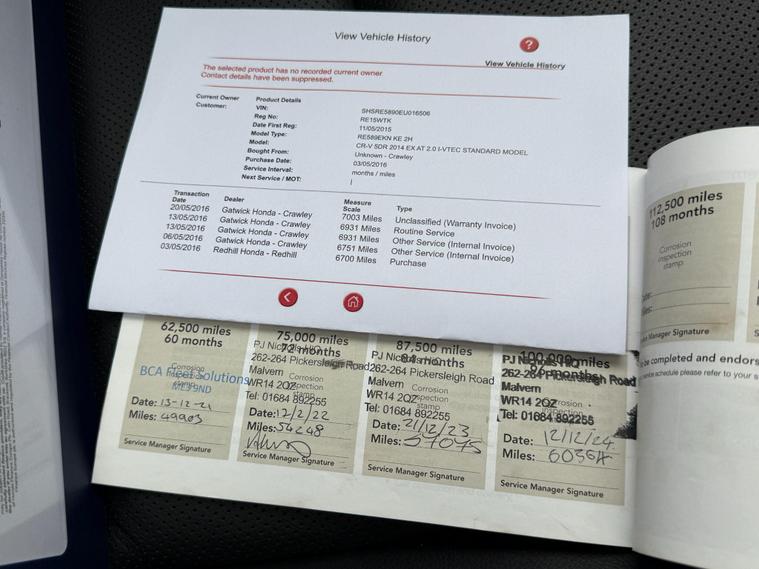 View Vehicle History
?
View Vehicle History
The selected product has no recorded current owner
Contact details have been suppressed.
Current Owner
Customer:
Product Details
VIN: SHSRE5890EU016506
Reg No: RE15WTK
Date First Reg: 11/05/2015
Model Type: RE589EKN KE 2H
Model: CR-V 5DR 2014 EX AT 2.0 I-VTEC STANDARD MODEL
Bought From: Unknown - Crawley
Purchase Date: 03/05/2016
Service Interval: months / miles
Next Service / MOT: |
Transaction Date Dealer Measure Scale Type
20/05/2016 Gatwick Honda - Crawley 7003 Miles Unclassified (Warranty Invoice)
13/05/2016 Gatwick Honda - Crawley 6931 Miles Routine Service
13/05/2016 Gatwick Honda - Crawley 6931 Miles Other Service (Internal Invoice)
06/05/2016 Gatwick Honda - Crawley 6751 Miles Other Service (Internal Invoice)
03/05/2016 Redhill Honda - Redhill 6700 Miles Purchase
62,500 miles
60 months
BCA Fleet Solutions
Corrosion
inspection
stamp
Date: 13-12-21
Miles: 49903
Service Manager Signature
75,000 miles
72 months
PJ Nicholls
262-264 Pickersleigh Road
Malvern
WR14 2QZ
Tel: 01684 892255
Corrosion
inspection
stamp
Date: 12/2/22
Miles: 54248
Service Manager Signature
87,500 miles
84 months
PJ Nicholls
262-264 Pickersleigh Road
Malvern
WR14 2QZ
Tel: 01684 892255
Corrosion
inspection
stamp
Date: 21/12/23
Miles:
Service Manager Signature
100,000 miles
PJ Nicholls
Pickersleigh Road
Malvern
WR14 2QZ
Tel: 01684 892255
Corrosion
Date: 12/12/24
Miles:
Service Manager Signature
112,500 miles
108 months
Corrosion
inspection
stamp
Date:
Miles:
Manager Signature
be completed and endors
schedule please refer to your s